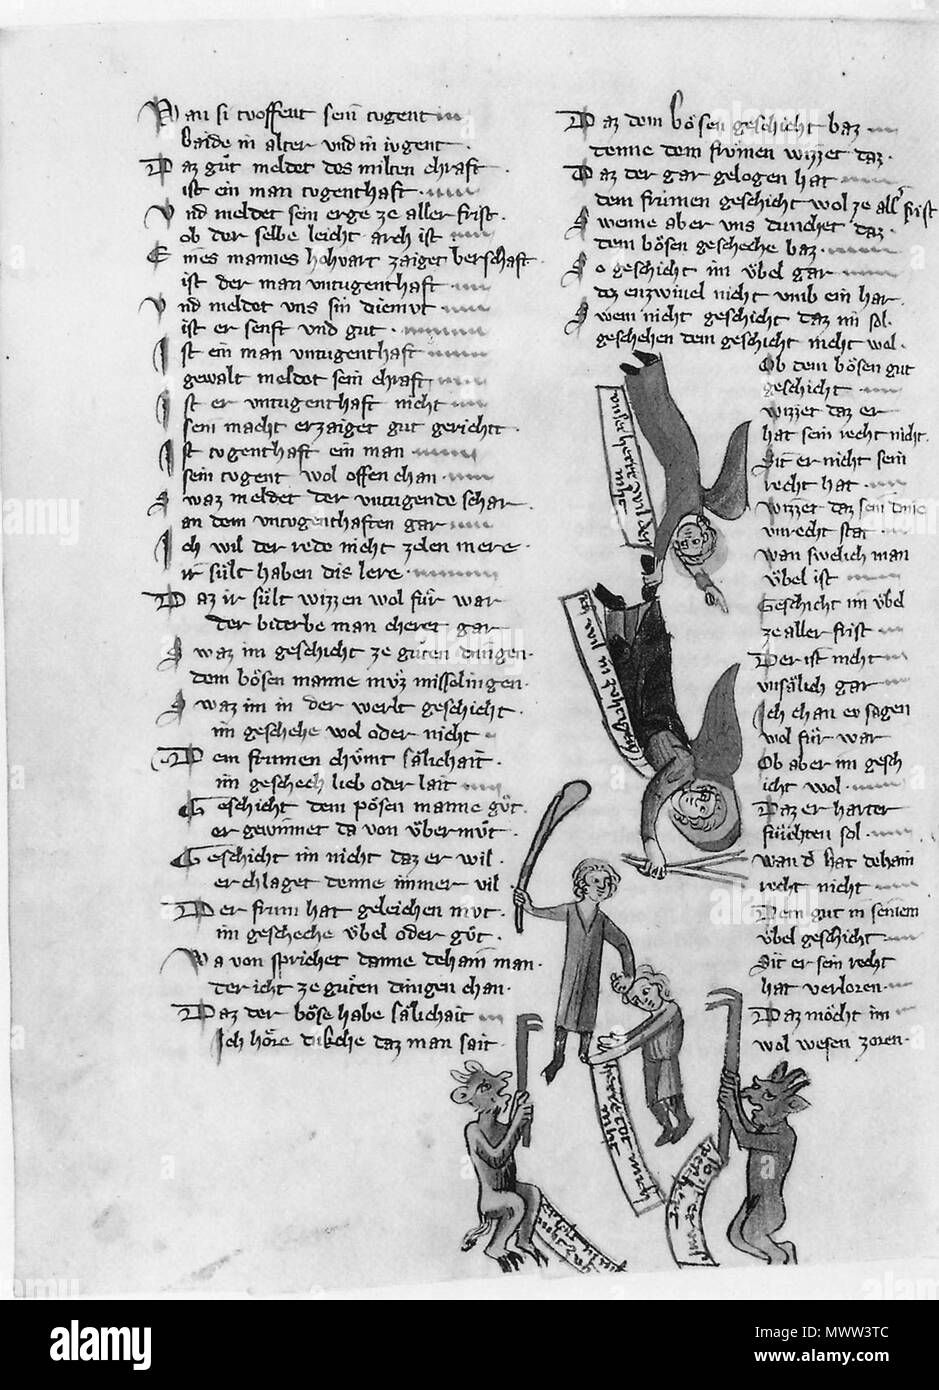 Wan si tuoffent sein tugent
baide in alter und in iugent
Daz gůt meldet des milten chraft
ist ein man tugenthaft
Vnd meldet sein erge ze aller frist
ob der selbe leicht arch ist
Eines mannes hohvart zaiget herschaft
ist der man untugenthaft
Vnd meldet uns sin diemut
ist er senft und gut
Ist ein man untugenthaft
gewalt meldet sein chraft
Ist er untugenthaft nicht
sein macht erzaiget gut gericht
Ist tugenthaft ein man
sein tugent wol offen chan
Swaz meldet der untugende schar
an dem untugenthaften gar
Ich wil der rede nicht zelen mere
ir sůlt haben dis lere
Daz ir sůlt wizzen wol fůr war
der biderbe man cheret gar
Swaz im geschicht ze gůten dingen
dem bősen manne můz misselingen
Swaz im in der werlt geschicht
im geschehe wol oder nicht
Dem frumen chůmt sålichait
im geschech lieb oder lait
Geschicht dem pősen manne gůt
er gewinnet da von ůbermůt
Geschicht im nicht daz er wil
er chlaget denne immer vil
Der frum hat geleichen mut
im gescheche ůbel oder gůt
Wa von sprichet danne dehain man
der icht ze gůten dingen chan
Daz der bőse habe sålichait
Ich hőre dikche daz man sait
Daz dem bősen geschicht baz
denne dem frumen wizzet daz
Daz der gar gelogen hat
dem frumen geschicht wol ze aller frist
Swenne aber uns dunchet daz
dem bősen gescheche baz
So geschicht im ůbel gar
dez enzwivel nicht umb ein har
Swem nicht geschicht daz im sol
geschehen dem geschicht nicht wol
Ob dem bősen gut
geschicht
wizzet daz er
hat sein recht nicht
Sit er nicht sein
recht hat
wizzet daz sein dinc
unrecht stat
wan swelich man
ůbel ist
Geschicht im ůbel
ze aller frist
Der ist nicht
unsålich gar
Ich chan ev sagen
wol fůr war
Ob aber im gesch
icht wol
Daz er harter
fůrchten sol
wand hat dehain
recht nicht
Dem gut in seinem
ůbel geschicht
Sit er sein recht
hat verloren
Daz mőcht im
wol wesen zoren
unser herre wil der
niht
herre tőt mich
niht
alamy
Image ID: MWW3TC
www.alamy.com